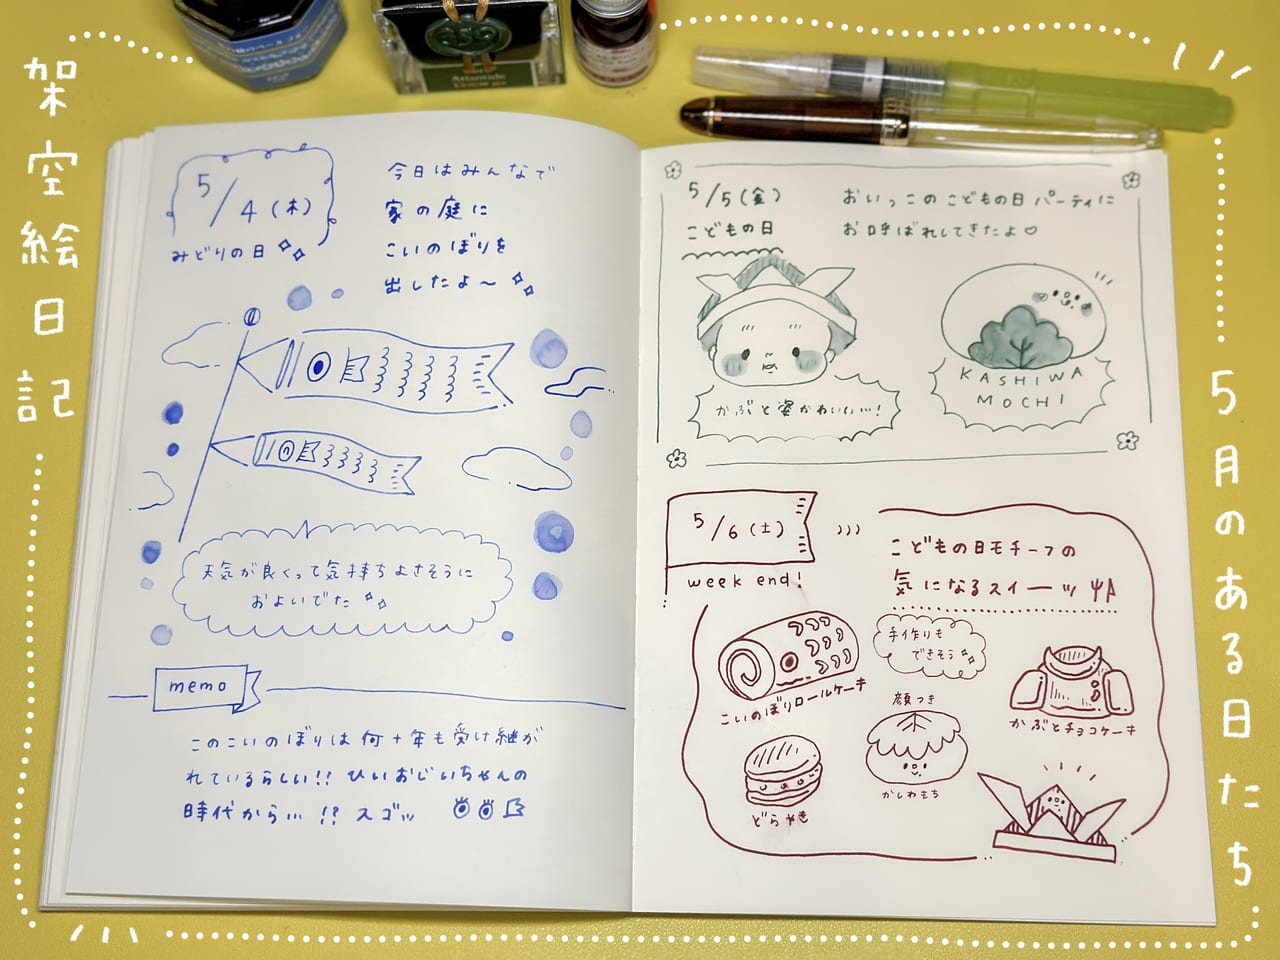 架空絵日記
5月のある日たち
Atlantide
5/4(木)
みどりの日
今日はみんなで
家の庭に
こいのぼりを
出したよ〜
天気が良くって気持ちよさそうに
およいでた
memo
このこいのぼりは何十年も受け継が
れているらしい!! ひいおじいちゃんの
時代から… !? スゴッ
5/5(金)
こどもの日
おいっこのこどもの日パーティに
お呼ばれしてきたよ♡
かぶと姿かわいい…!
KASHIWA
MOCHI
5/6(土)
week end!
こどもの日モチーフの
気になるスイーツ
こいのぼりロールケーキ
手作りも
できそう
かぶとチョコケーキ
どらやき
顔つき
かしわもち